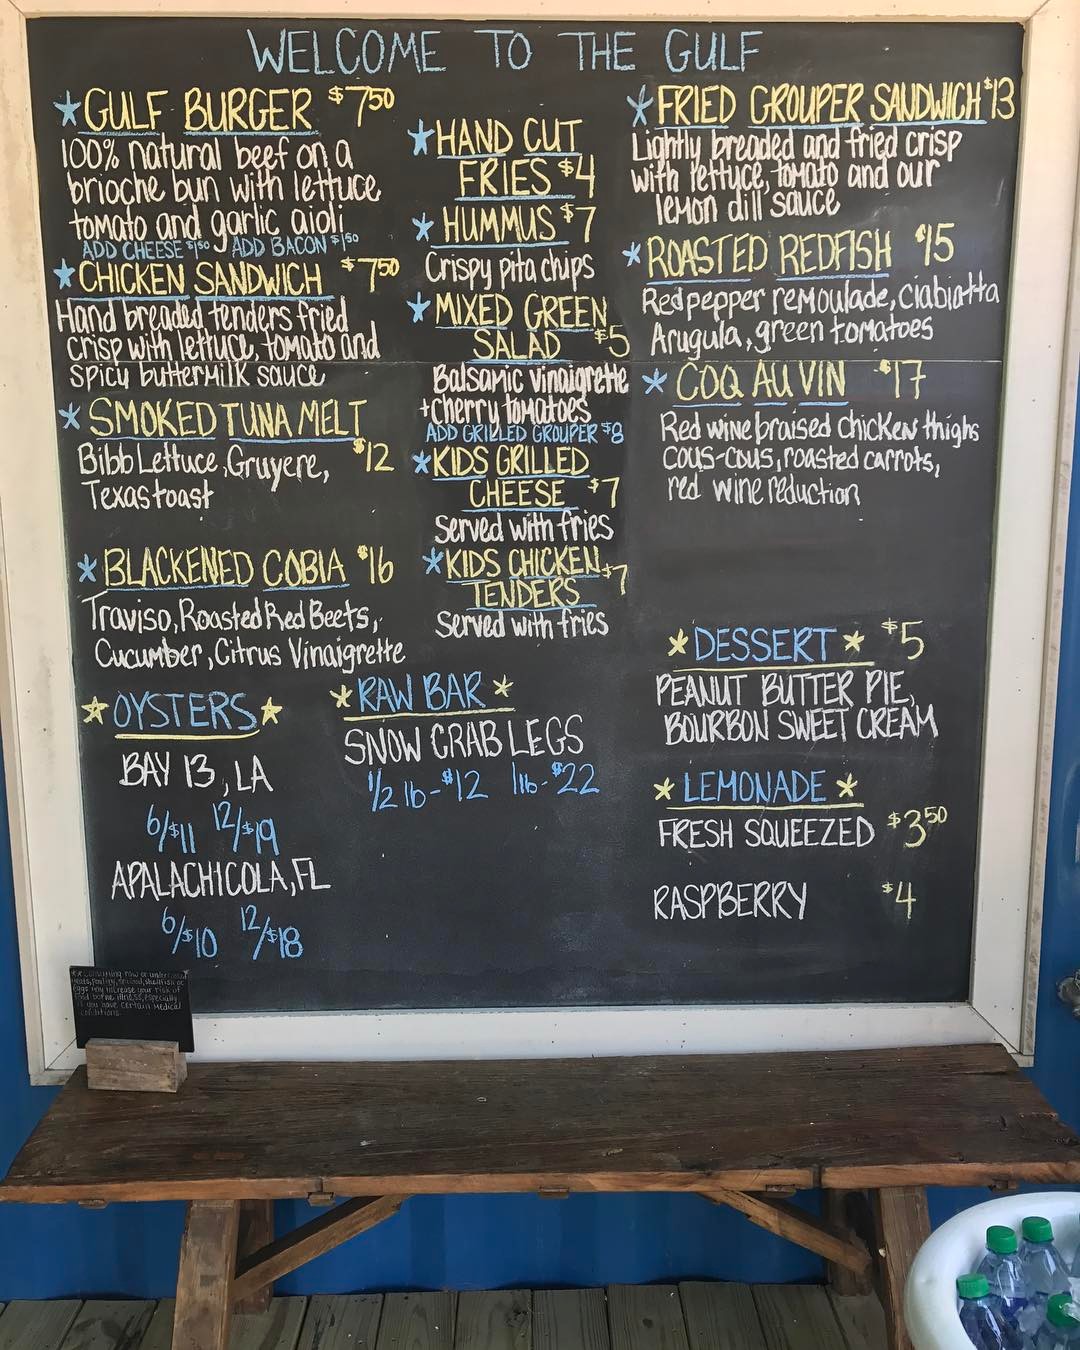 WELCOME TO THE GULF
*GULF BURGER $7.50
100% natural beef on a
brioche bun with lettuce
tomato and garlic aioli
ADD CHEESE $1.50 ADD BACON $1.50
*CHICKEN SANDWICH $7.50
Hand breaded tenders fried
crisp with lettuce, tomato and
spicy buttermilk sauce
*SMOKED TUNA MELT
Bibb Lettuce, Gruyere, $12
Texas toast
*BLACKENED COBIA $16
Traviso, Roasted Red Beets,
Cucumber, Citrus Vinaigrette
*OYSTERS*
BAY 13, LA
6/$11 12/$19
APALACHICOLA, FL
6/$10 12/$18
*HAND CUT
FRIES $4
*HUMMUS $7
Crispy pita chips
*MIXED GREEN
SALAD $5
Balsamic vinaigrette
+cherry tomatoes
ADD GRILLED GROUPER $8
*KIDS GRILLED
CHEESE $7
Served with fries
*KIDS CHICKEN
TENDERS $7
Served with fries
*RAW BAR*
SNOW CRAB LEGS
1/2 lb-$12 1lb-$22
*FRIED GROUPER SANDWICH $13
Lightly breaded and fried crisp
with lettuce, tomato and our
lemon dill sauce
*ROASTED REDFISH $15
Red pepper remoulade, Ciabiatta
Arugula, green tomatoes
*COQ AU VIN $17
Red wine braised chicken thighs
cous-cous, roasted carrots,
red wine reduction
*DESSERT* $5
PEANUT BUTTER PIE,
BOURBON SWEET CREAM
*LEMONADE*
FRESH SQUEEZED $3.50
RASPBERRY $4
**Consuming raw or undercooked
meats, poultry, seafood, shellfish or
eggs may increase your risk of
food borne illness, especially
if you have certain medical
conditions.